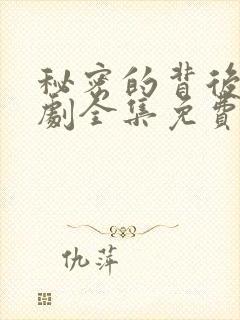 秘密的背後
劇全集免費
仇萍